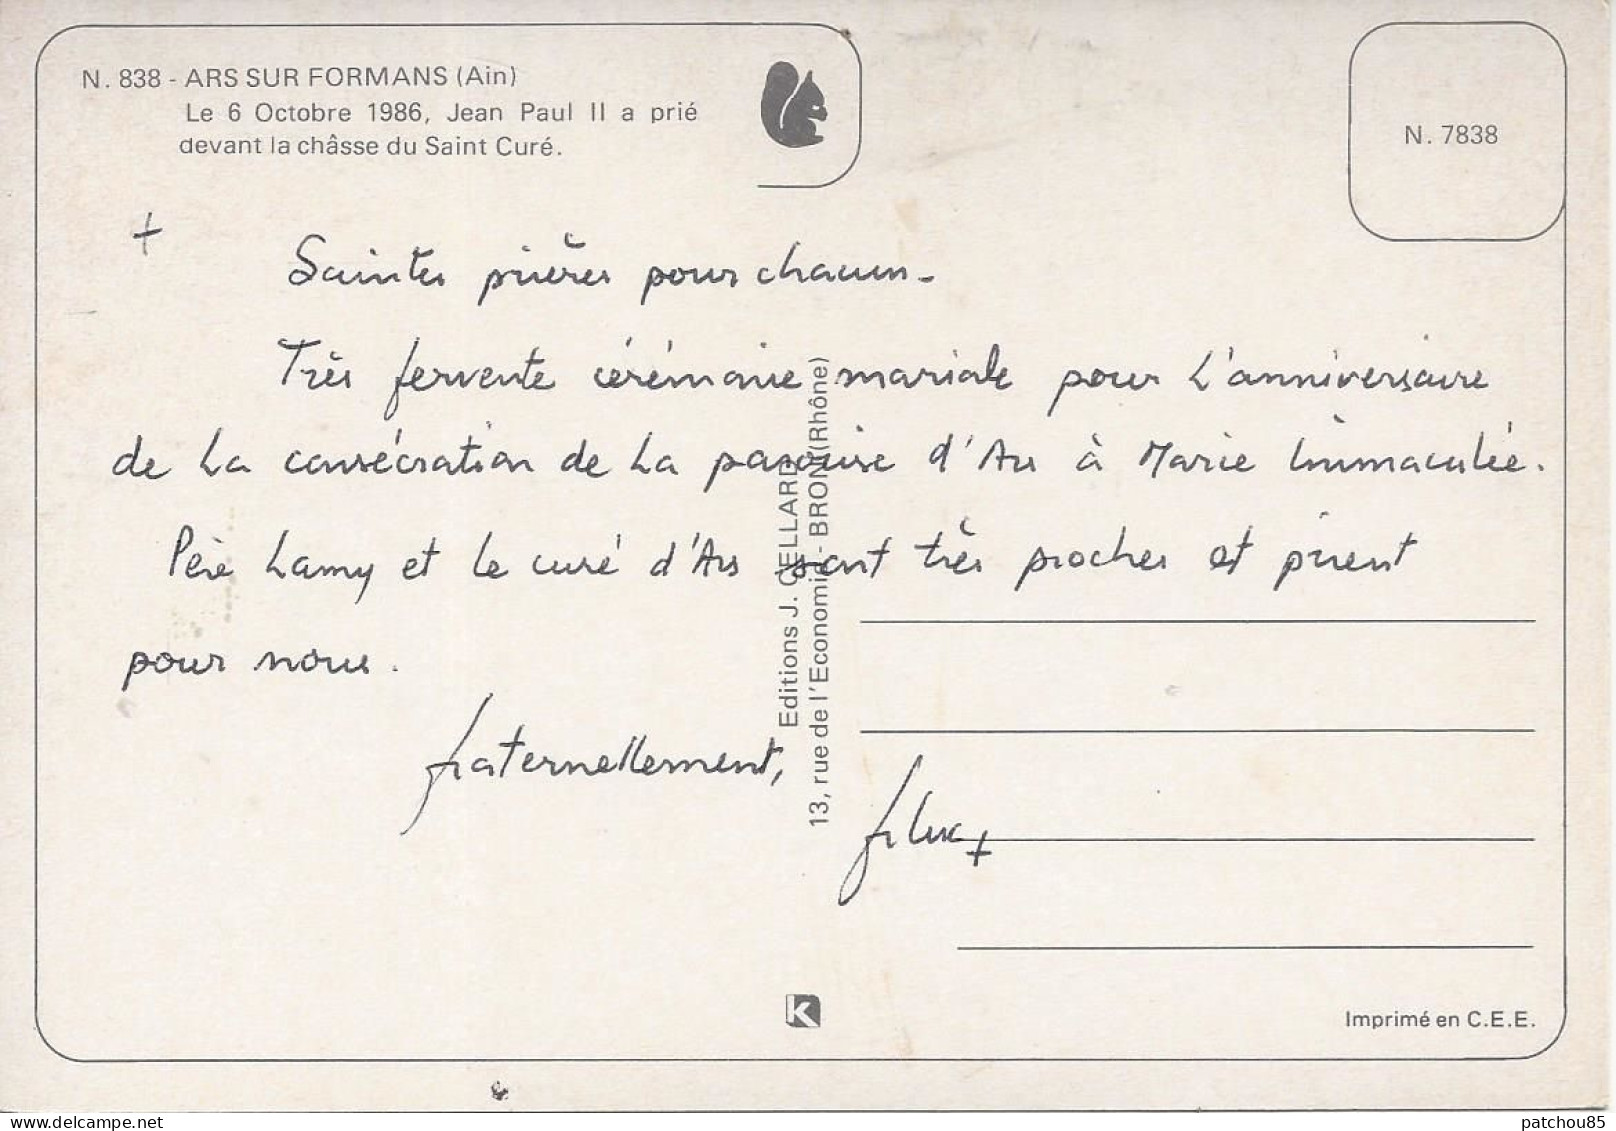 N. 838 - ARS SUR FORMANS (Ain)
Le 6 Octobre 1986, Jean Paul II a prié
devant la châsse du Saint Curé.
N. 7838
+
Saintes prières pour chacun.
Très fervente cérémonie mariale pour l'anniversaire
de la consécration de la paroisse d'Ars à Marie Immaculée.
Père Lamy et le curé d'Ars sont très proches et prient
pour nous.
fraternellement,
fr Luc +
Editions J. CELLARD
13, rue de l'Economie - BRON (Rhône)
K
Imprimé en C.E.E.
patchou85